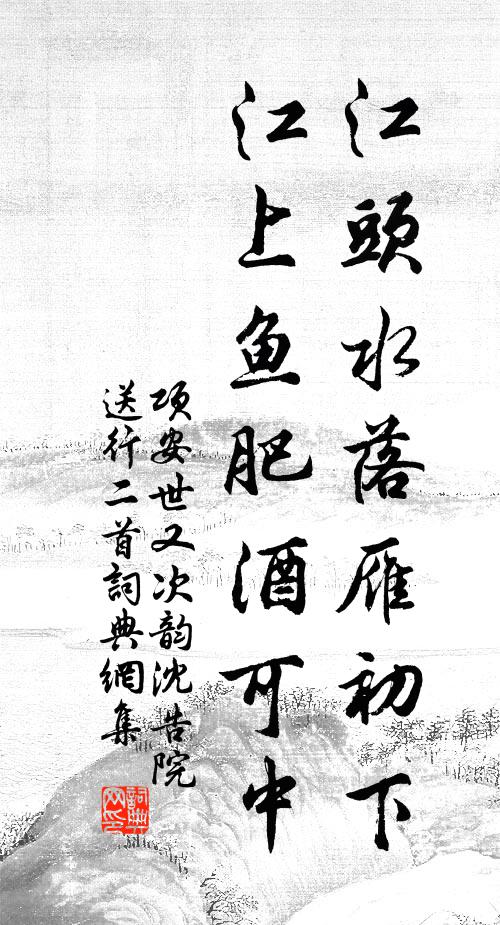 江頭水落雁初下
江上鱼肥酒可中
项安世又次韵沈告院
送行二首詞典網集